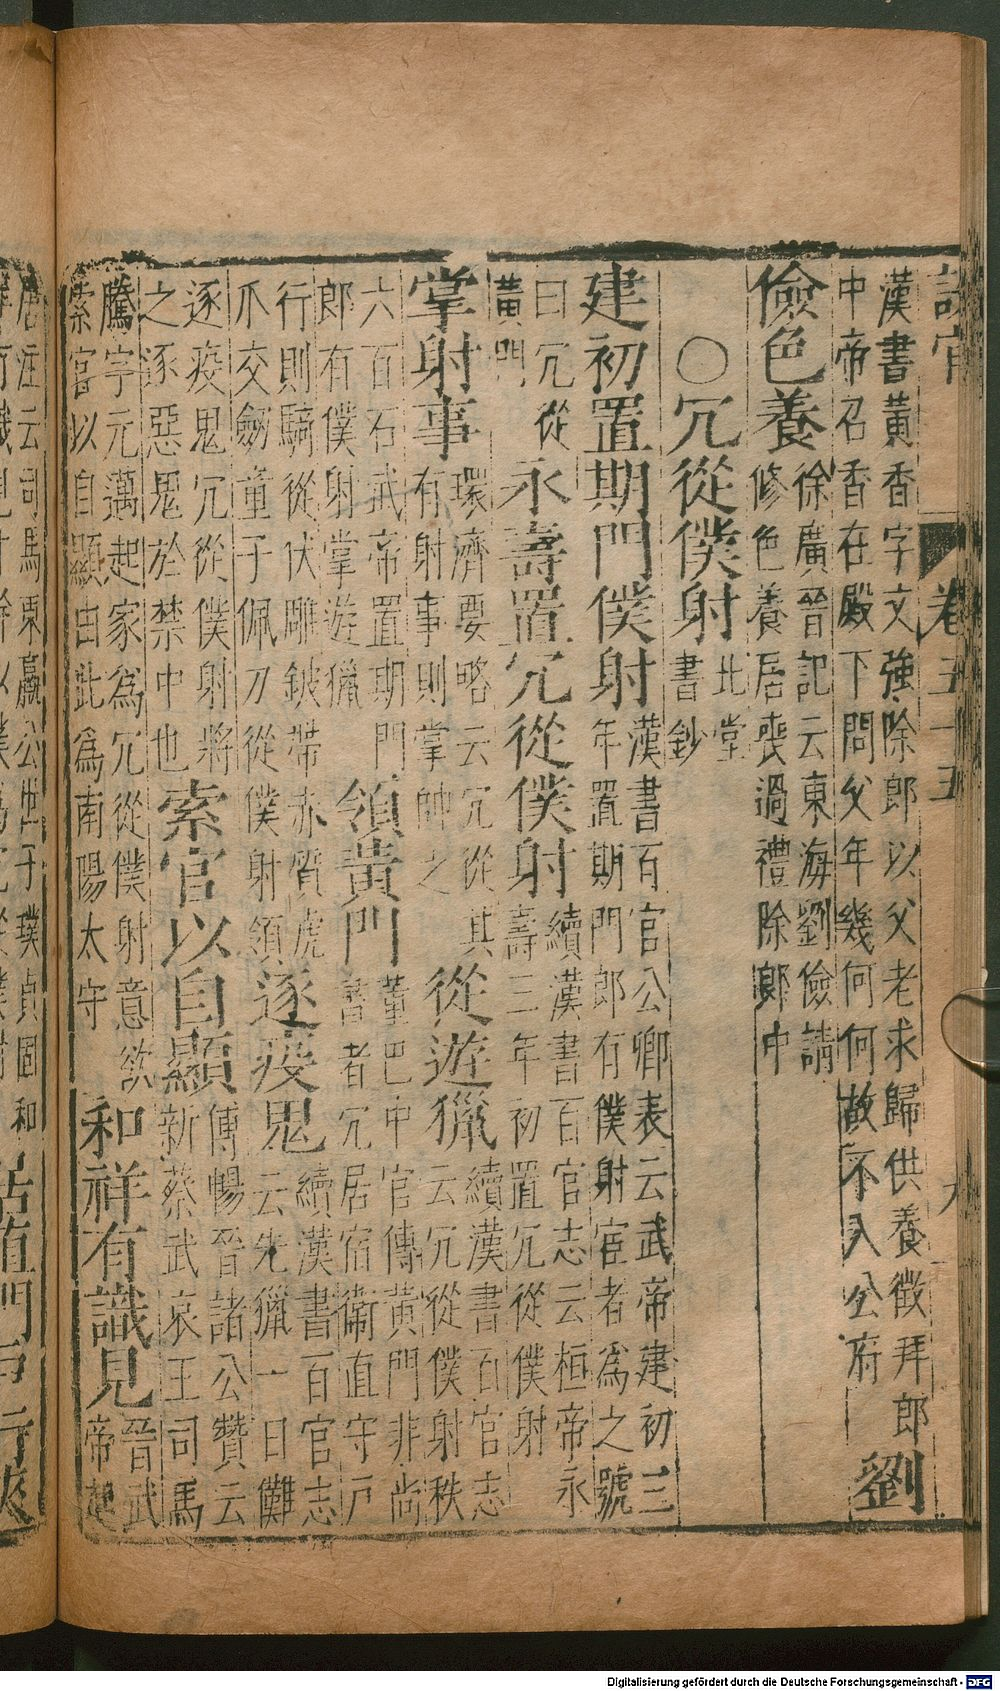 設官 卷五十五 九
漢書黃香字文強除郎以父老求歸供養徵拜郎
中帝召香在殿下問父年幾何何故不入公府 劉
儉色養 徐廣晉記云東海劉儉請
修色養居喪過禮除郎中
〇冗從僕射 北堂
書鈔
建初置期門僕射 漢書百官公卿表云武帝建初三
年置期門郎有僕射宦者為之號
曰冗從
黃門 永壽置冗從僕射 續漢書百官志云桓帝永
壽三年初置冗從僕射
掌射事 環濟要略云冗從其
有射事則掌帥之 從遊獵 續漢書百官志
云冗從僕射秩
六百石武帝置期門
郎有僕射掌遊獵 領黃門 董巴中官傳黃門非尚
書者冗居宿衛直守戶
行則騎從伏雕鈹帶赤質虎
爪交劒童子佩刀從僕射領 逐疫鬼 續漢書百官志
云先獵一日儺
逐疫鬼冗從僕射將
之逐惡鬼於禁中也 索官以自顯 傅暢晉諸公贊云
新蔡武哀王司馬
騰字元邁起家為冗從僕射意欲
索官以自顯由此為南陽太守 和祥有識見 晉武
帝起
居注云司馬東嬴公世子璞貞固和
Digitalisierung gefördert durch die Deutsche Forschungsgemeinschaft - DFG